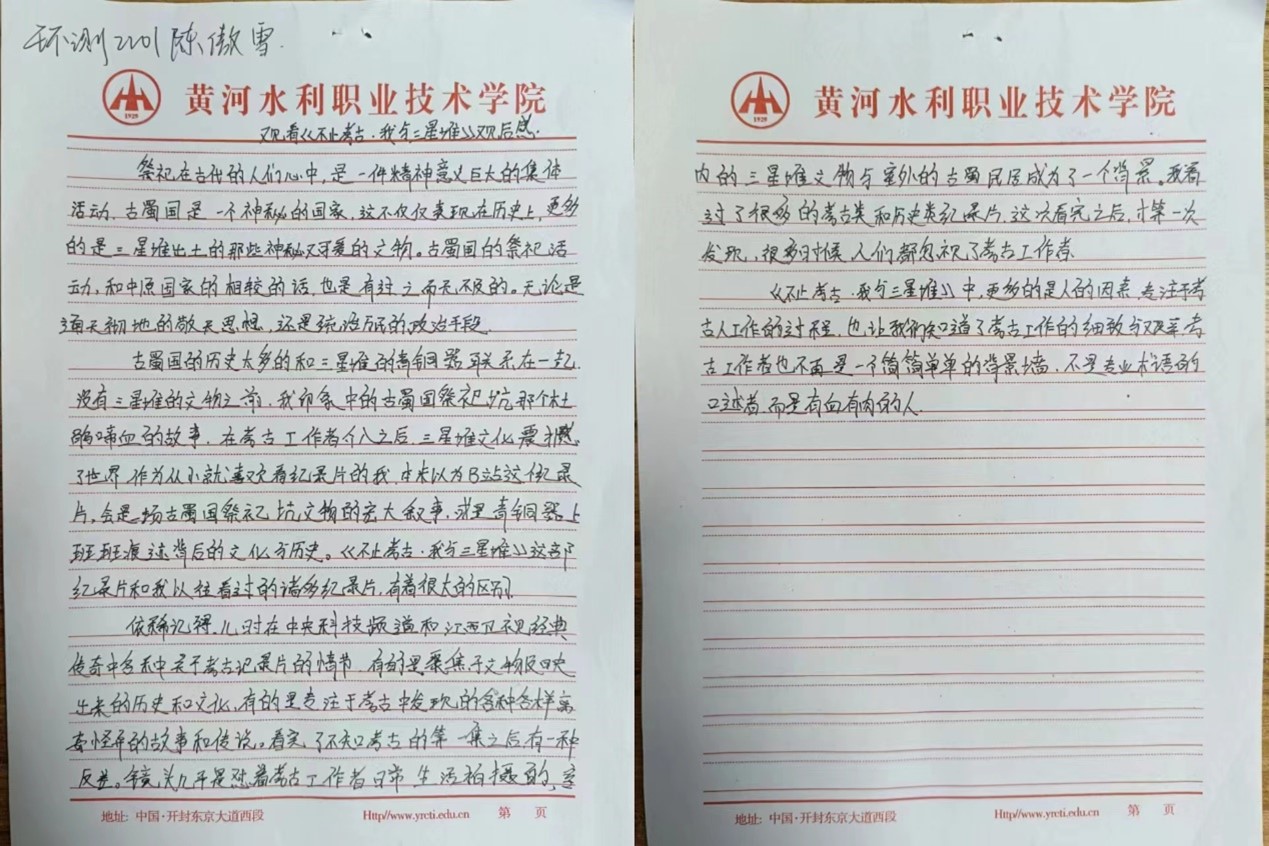 环测2201陈傲雪.
1929
黄河水利职业技术学院
观看《不止考古·我与三星堆》观后感.
祭祀在古代的人们心中，是一件精神意义巨大的集体
活动，古蜀国是一个神秘的国家，这不仅仅表现在历史上，更多
的是三星堆出土的那些神秘又可爱的文物。古蜀国的祭祀活
动，和中原国家的相较的话，也是有过之而无不及的。无论是
通天彻地的敬天思想，还是统治万民的政治手段.
古蜀国的历史太多的和三星堆的青铜器联系在一起.
没有三星堆的文物之前，我印象中的古蜀国祭祀坑那个杜
鹃啼血的故事，在考古工作者介入之后，三星堆文化震撼
了世界.作为从小就喜欢观看纪录片的我，本来以为B站这个纪录
片，会是一场古蜀国祭祀坑文物的宏大叙事，或是青铜器上
斑斑痕迹背后的文化与历史。《不止考古·我与三星堆》这部
纪录片和我以往看过的诸多纪录片，有着很大的区别.
依稀记得，儿时在中央科技频道和江西卫视经典
传奇中 关于考古记录片的情节，有的是聚焦于文物
出来的历史和文化，有的是专注于考古中发现的各种各样离
奇怪异的故事和传说。看完了不止考古的第一集之后，有一种
反差。镜头几乎是怼着考古工作者日常生活拍摄的，室
地址: 中国·开封东京大道西段
Http//www.yrcti.edu.cn
第 页
1929
黄河水利职业技术学院
内的三星堆文物与室外的古蜀民居成为了一个背景。我看
过了很多的考古类和历史类纪录片，这次看完之后，才第一次
发现，很多时候，人们都忽视了考古工作者.
《不止考古·我与三星堆》中，更多的是人的因素，专注于考
古人工作的过程，也让我们知道了考古工作的细致与艰辛考
古工作者也不再是一个简简单单的背景墙，不是专业术语的
口述者，而是有血有肉的人.
地址: 中国·开封东京大道西段
Http//www.yrcti.edu.cn
第 页